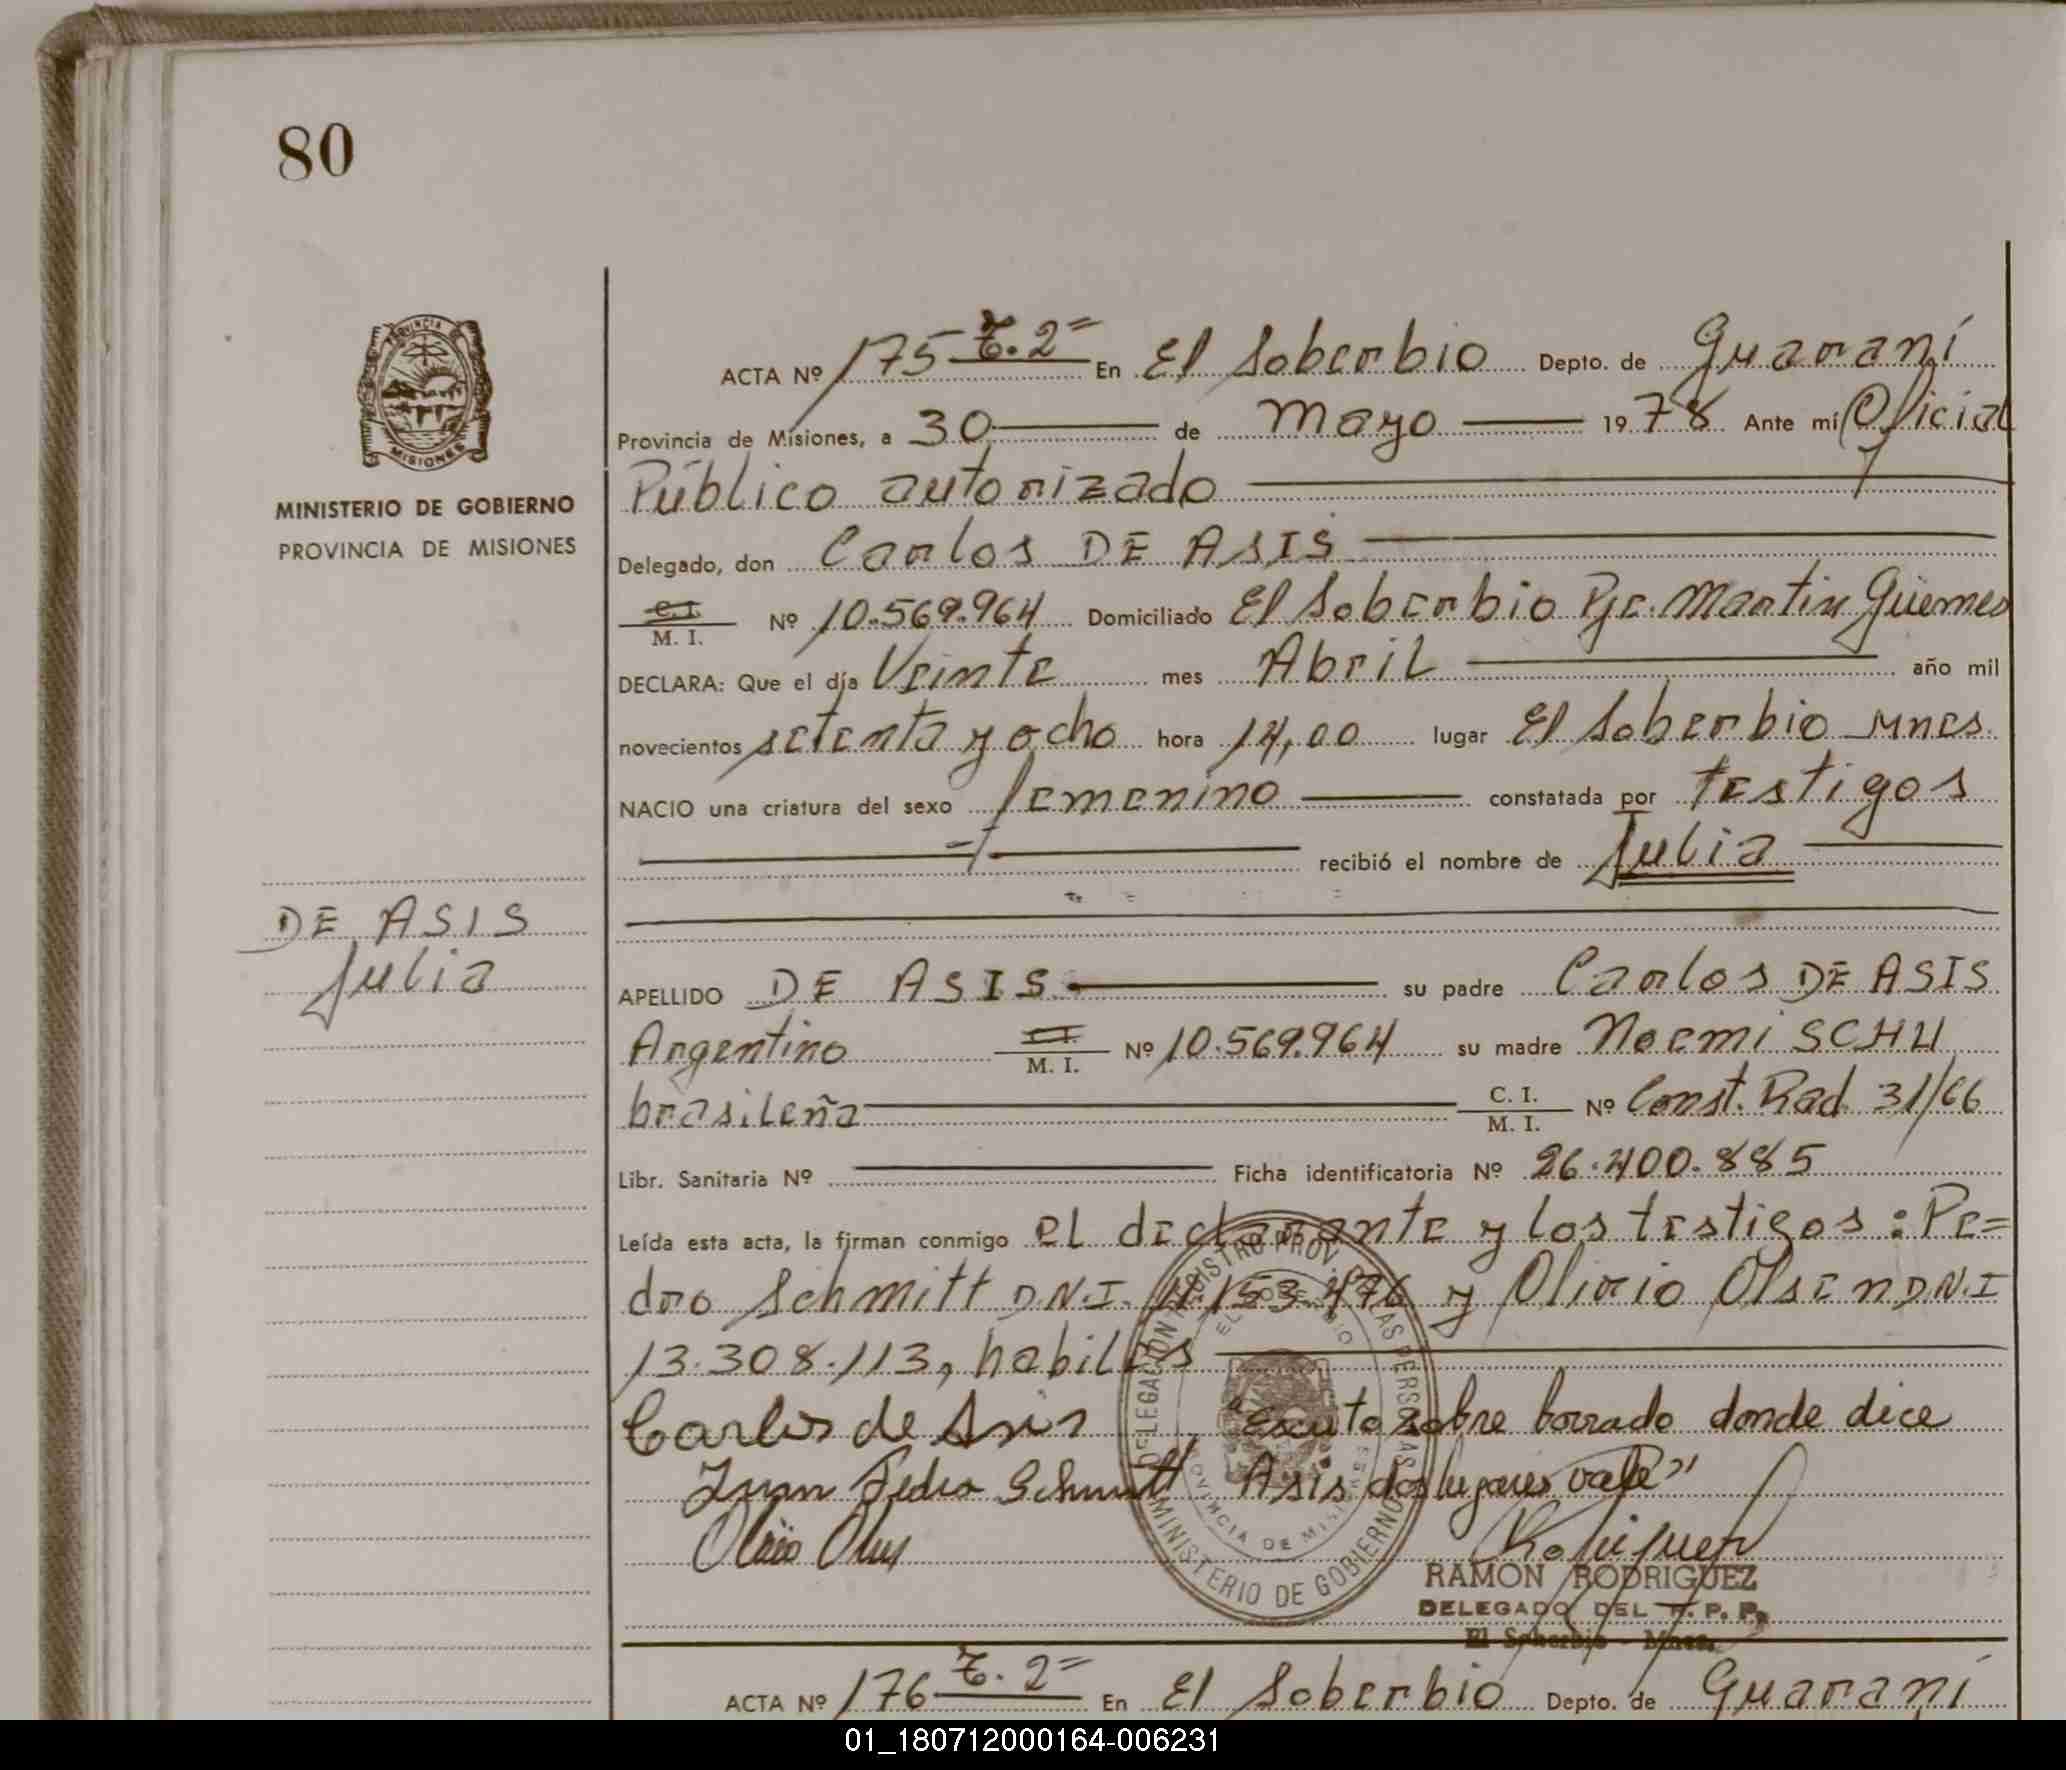 80
PROVINCIA
MISIONES
MINISTERIO DE GOBIERNO
PROVINCIA DE MISIONES
ACTA Nº 175 T. 2= En El Soberbio Depto. de Guaraní
Provincia de Misiones, a 30 de Mayo 1978 Ante mí Oficial
Público autorizado
Delegado, don Carlos DE ASIS
C.I. M. I. Nº 10.569.964 Domiciliado El Soberbio Pje. Martin Güemes
DECLARA: Que el día Veinte mes Abril año mil
novecientos setenta y ocho hora 14,00 lugar El Soberbio Mnes.
NACIO una criatura del sexo femenino constatada por testigos
recibió el nombre de Julia
DE ASIS
Julia
APELLIDO DE ASIS su padre Carlos DE ASIS
Argentino C.I. M. I. Nº 10.569.964 su madre Noemi SCHU
brasileña C. I. M. I. Nº Const. Rad. 31/66
Libr. Sanitaria Nº Ficha identificatoria Nº 26.400.885
Leída esta acta, la firman conmigo el declarante y los testigos: Pe=
dro Schmitt D.N.I. 11.153.476 y Olirio Olsen D.N.I
13.308.113, habiles
Carlos de Asis "Escrito sobre borrado donde dice
Juan Pedro Schmitt Asis dos lugares vale"
DELEGACION REGISTRO PROV. DE LAS PERSONAS
EL SOBERBIO
PROVINCIA DE MISIONES
MINISTERIO DE GOBIERNO
RAMON RODRIGUEZ
DELEGADO DEL R. P. P.
El Soberbio - Mnes.
ACTA Nº 176 T. 2= En El Soberbio Depto. de Guaraní
01_180712000164-006231